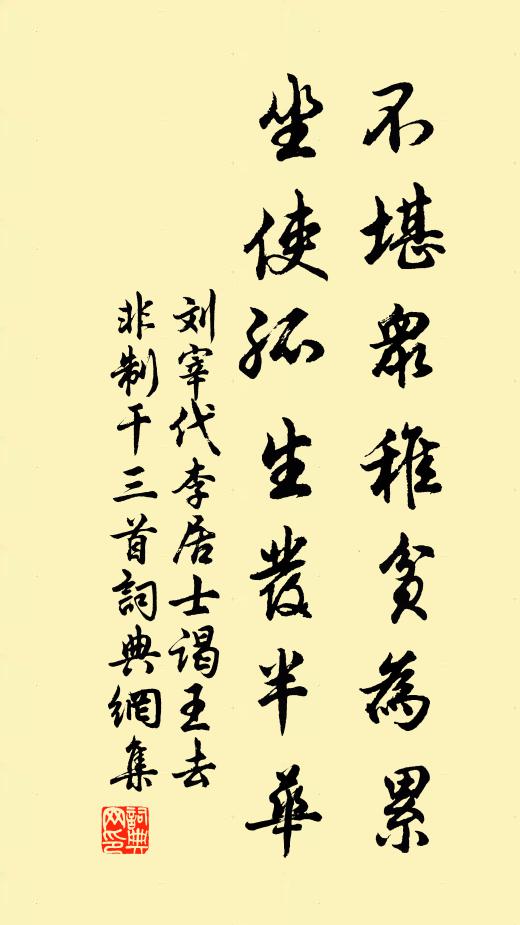 不堪眾稚貧為累
坐使孤生發半華
刘宰代李居士謁王去
非制干三首詞典網集
詞典
网印